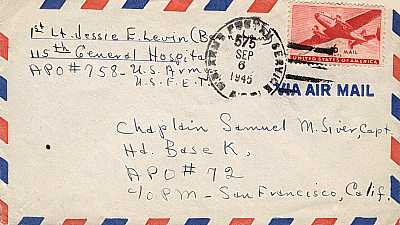 1st Lt. Jessie E. Levin
115th General Hospital
APO #758 - U.S. Army
U.S.F.E.T.
U.S. ARMY POSTAL SERVICE
575
SEP
6
1945
AIR MAIL
UNITED STATES OF AMERICA
VIA AIR MAIL
Chaplain Samuel M. Siver, Capt.
Hd. Base K,
APO #72
c/o PM - San Francisco, Calif.